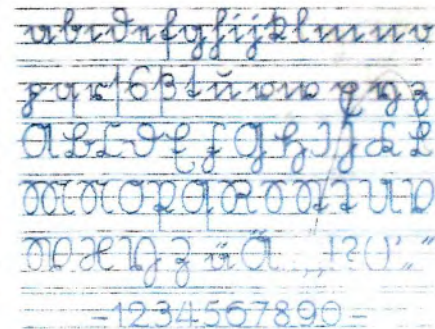 a b c d e f g h i j k l m n o
p q r ſ s ß t u v w x y z
A B C D E F G H I J K L
M N O P Q R S St T U V
W X Y Z ü Ä . , ! ? ( ) ' „ "
-1234567890-